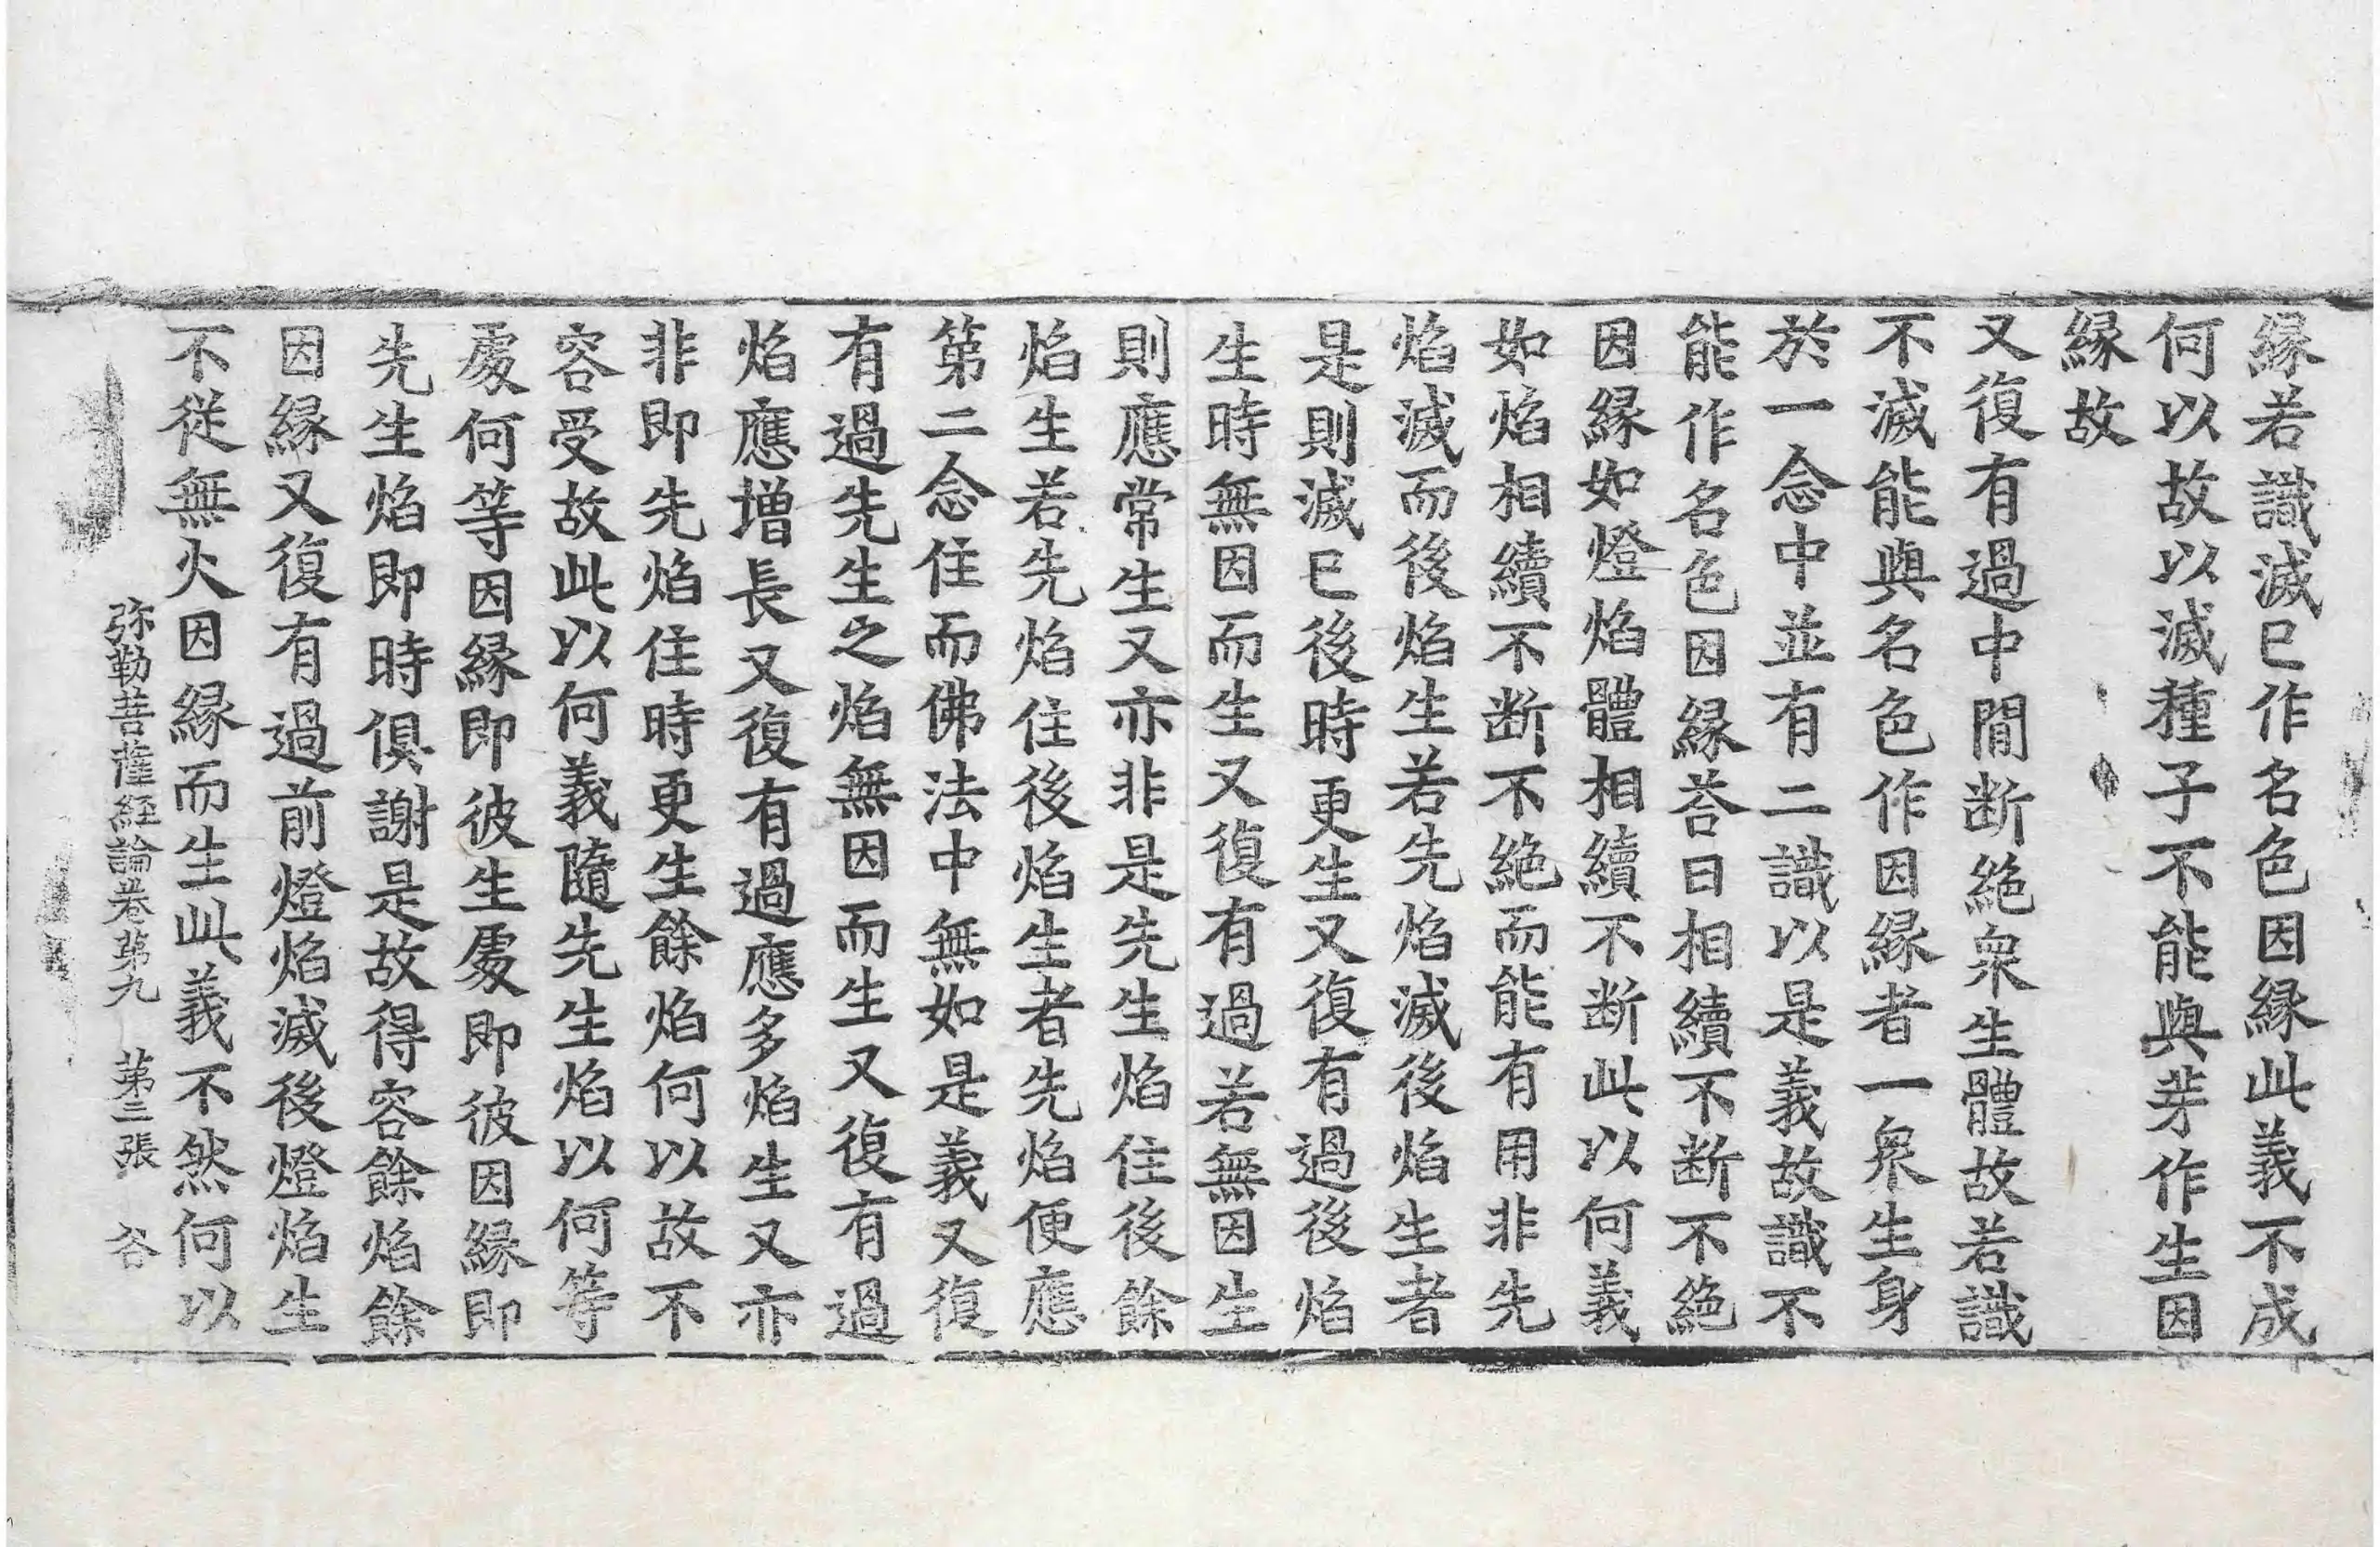 縁若識滅已作名色因縁此義不成
何以故以滅種子不能與芽作生因
縁故
又復有過中間断絶衆生體故若識
不滅能與名色作因縁者一衆生身
於一念中並有二識以是義故識不
能作名色因縁荅曰相續不断不絶
因縁如燈焰體相續不断此以何義
如焰相續不断不絶而能有用非先
焰滅而後焰生若先焰滅後焰生者
是則滅已後時更生又復有過後焰
生時無因而生又復有過若無因生
則應常生又亦非是先生焰住後餘
焰生若先焰住後焰生者先焰便應
第二念住而佛法中無如是義又復
有過先生之焰無因而生又復有過
焰應増長又復有過應多焰生又亦
非即先焰住時更生餘焰何以故不
容受故此以何義隨先生焰以何等
處何等因縁即彼生處即彼因縁即
先生焰即時俱謝是故得容餘焰餘
因縁又復有過前燈焰滅後燈焰生
不從無火因縁而生此義不然何以
弥勒菩薩経論卷第九 第二張 谷